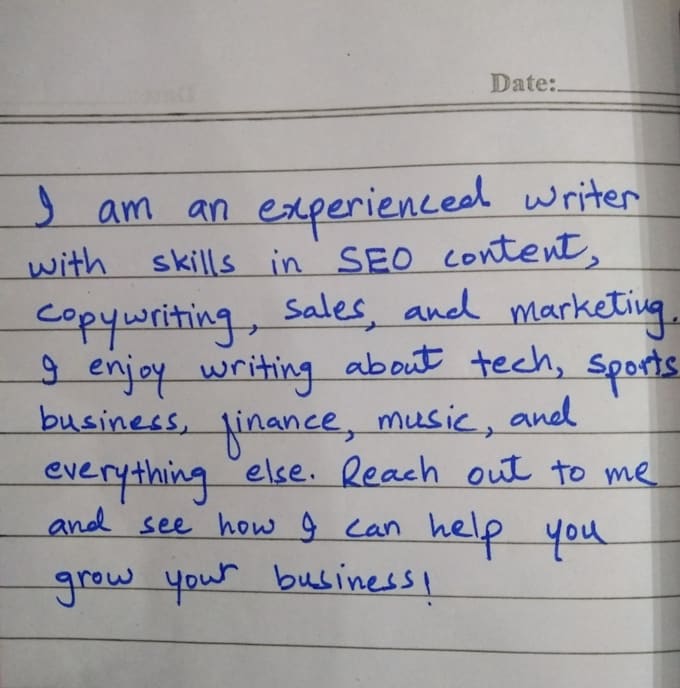 Date:
I am an experienced writer
with skills in SEO content,
copywriting, sales, and marketing.
I enjoy writing about tech, sports
business, finance, music, and
everything else. Reach out to me
and see how I can help you
grow your business!